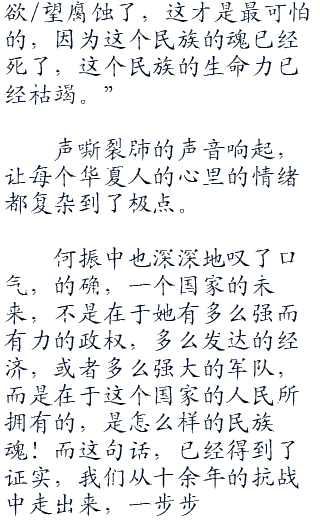 欲/望腐蚀了，这才是最可怕
的，因为这个民族的魂已经
死了，这个民族的生命力已
经枯竭。”
声嘶裂肺的声音响起，
让每个华夏人的心里的情绪
都复杂到了极点。
何振中也深深地叹了口
气，的确，一个国家的未
来，不是在于她有多么强而
有力的政权，多么发达的经
济，或者多么强大的军队，
而是在于这个国家的人民所
拥有的，是怎么样的民族
魂！而这句话，已经得到了
证实，我们从十余年的抗战
中走出来，一步步